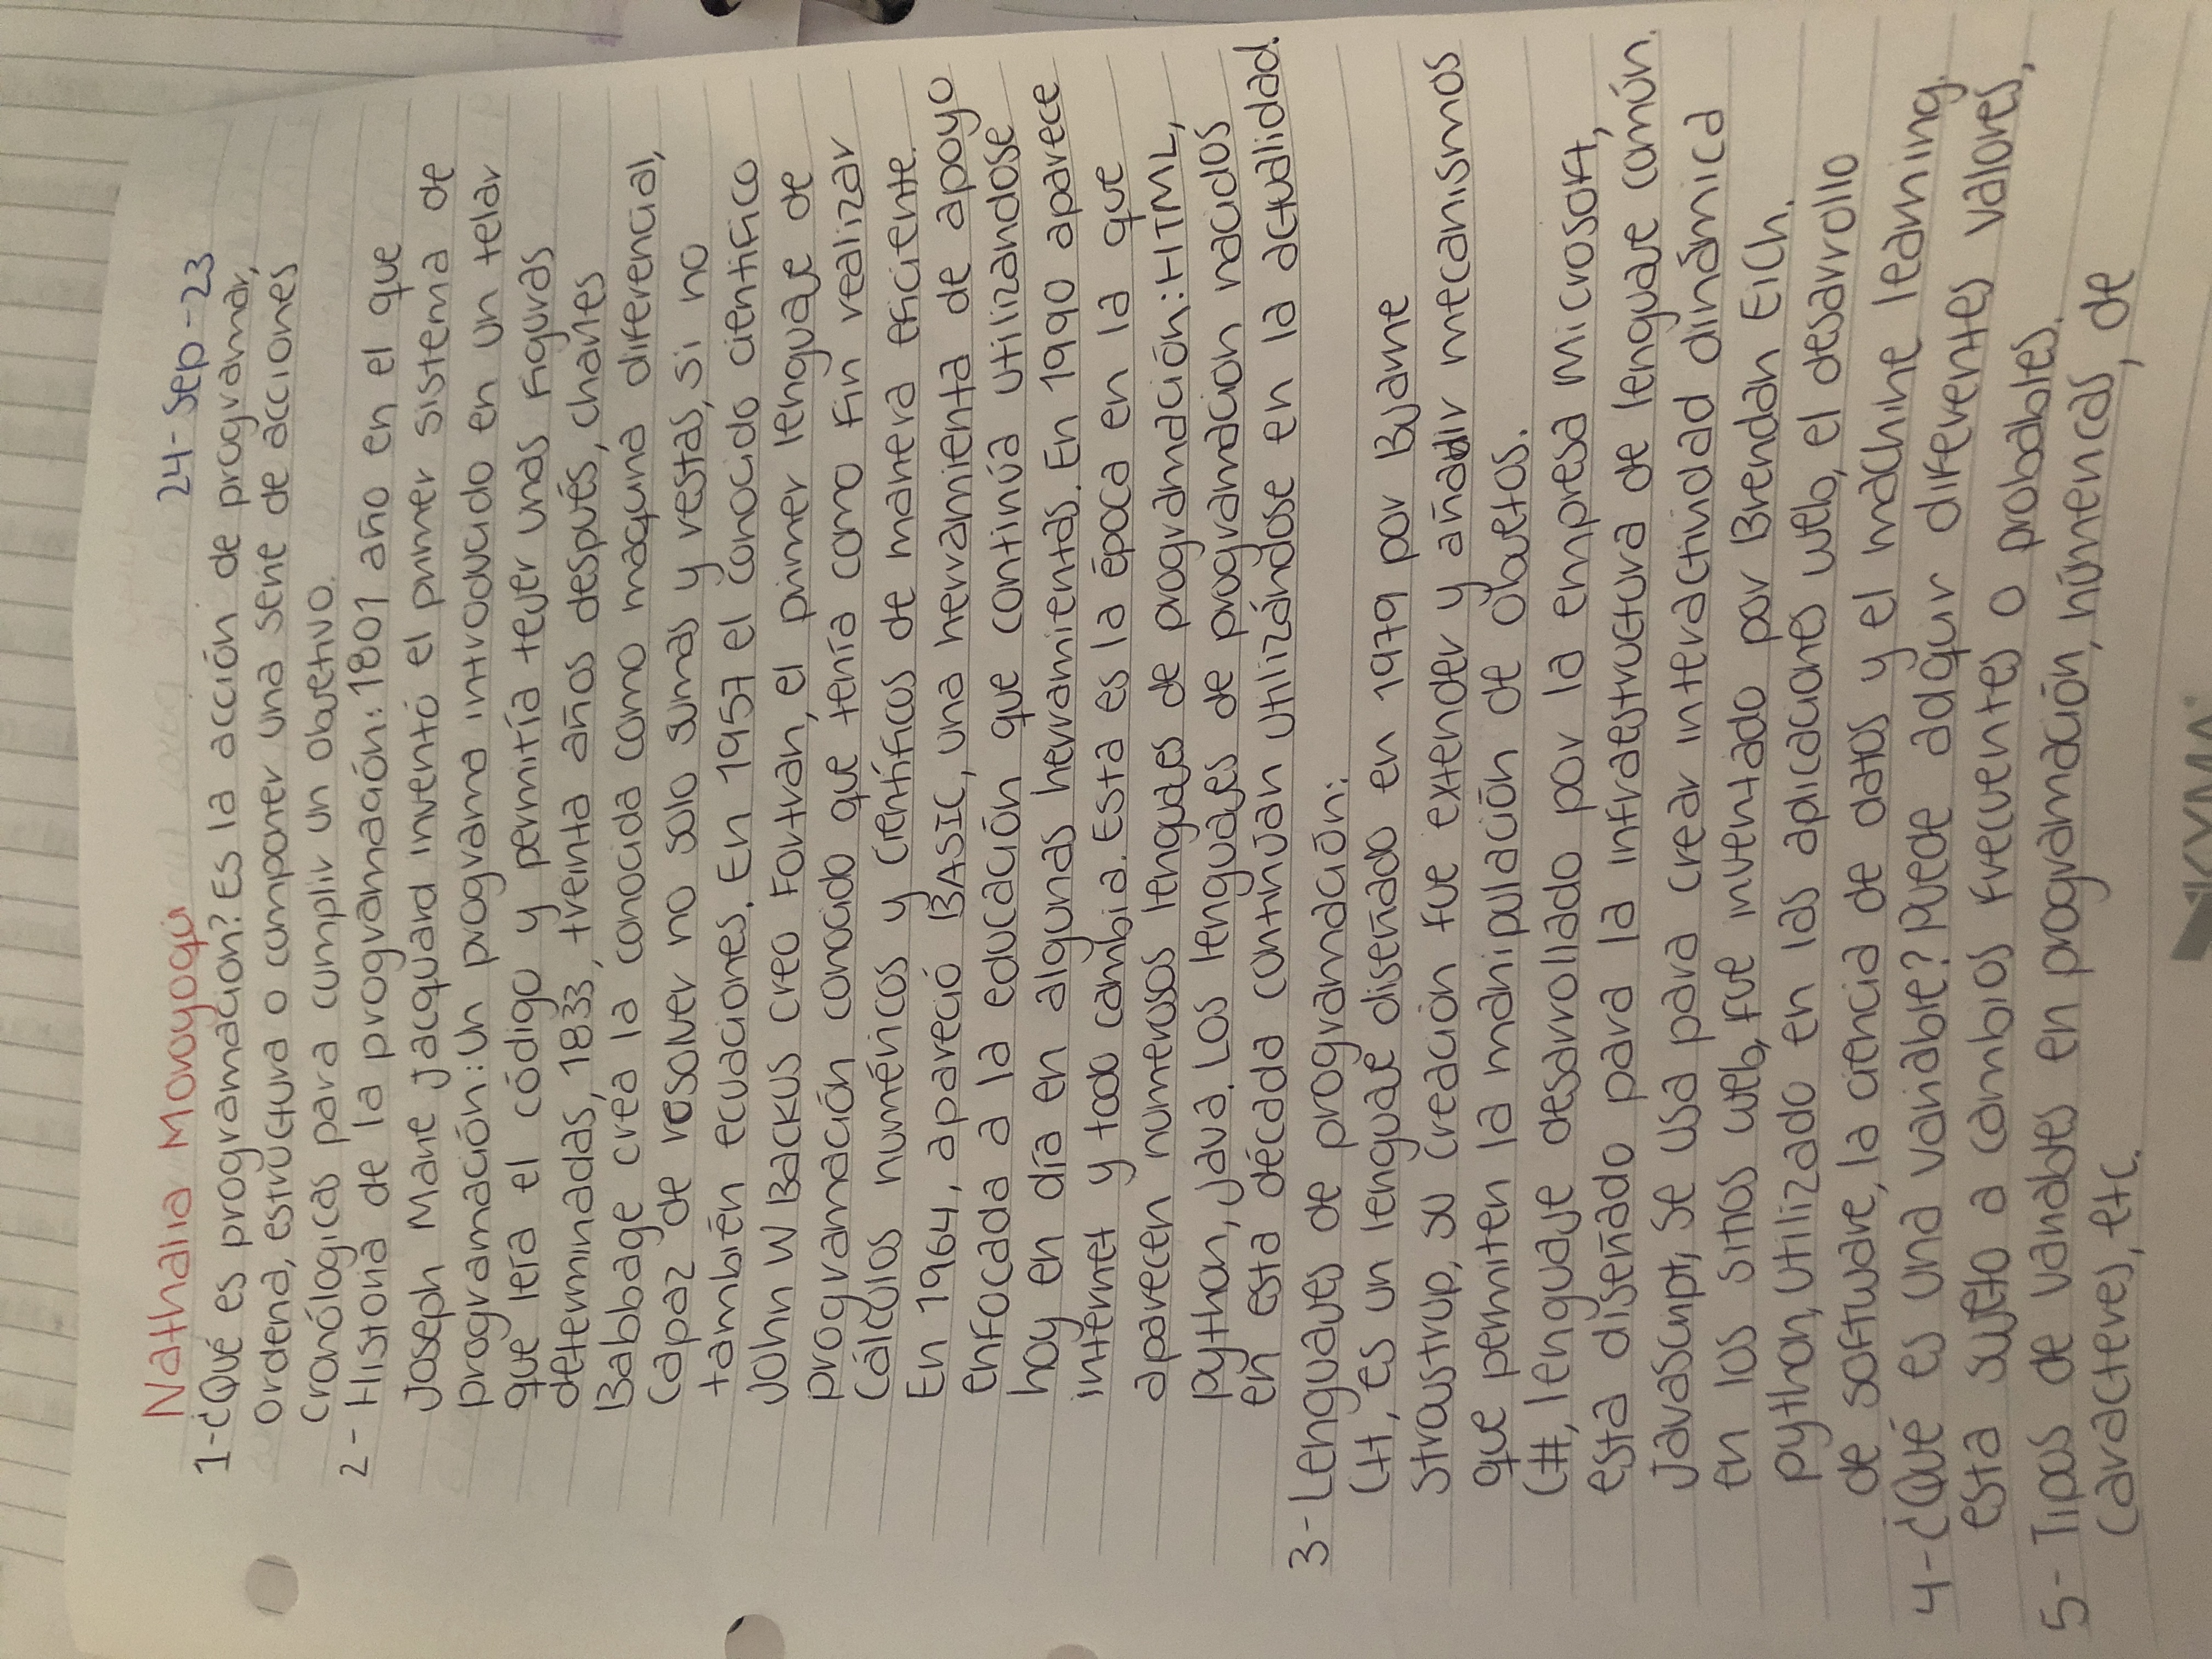 Nathalia Moroyoqui 24-Sep-23
1-¿Qué es programacion? Es la acción de programar,
ordena, estructura o componer una serie de acciones
cronólogicas para cumplir un objetivo.
2- Historia de la programación: 1801 año en el que
Joseph Marie Jacquard inventó el primer sistema de
programación: un programa introducido en un telar
que leía el código y permitía tejer unas figuras
determinadas, 1833, treinta años después, charles
Babbage crea la conocida como maquina diferencial,
capaz de resolver no solo sumas y restas, si no
también ecuaciones. En 1957 el conocido científico
John W Backus creo Fortran, el primer lenguaje de
programación conocido que tenía como fin realizar
cálculos numéricos y científicos de manera eficiente.
En 1964, apareció BASIC, una herramienta de apoyo
enfocada a la educación que continúa utilizandose
hoy en día en algunas herramientas. En 1990 aparece
internet y todo cambia. Esta es la época en la que
aparecen numerosos lenguajes de programación: HTML,
python, Java. Los lenguajes de programación nacidos
en esta década continúan utilizándose en la actualidad.
3- Lenguajes de programación:
C++, es un lenguaje diseñado en 1979 por Bjarne
Stroustrup, su creación fue extender y añadir mecanismos
que permiten la manipulación de objetos.
C#, lenguaje desarrollado por la empresa Microsoft,
esta diseñado para la infraestructura de lenguaje común.
Javascript, se usa para crear interactividad dinámica
en los sitios web, fue inventado por Brendan Eich.
python, utilizado en las aplicaciones web, el desarrollo
de software, la ciencia de datos y el machine learning.
4-¿Qué es una variable? Puede adquir diferentes valores,
esta sujeto a cambios frecuentes o probables.
5- Tipos de variables en programación, númericas, de
caracteres, etc.
KYMA